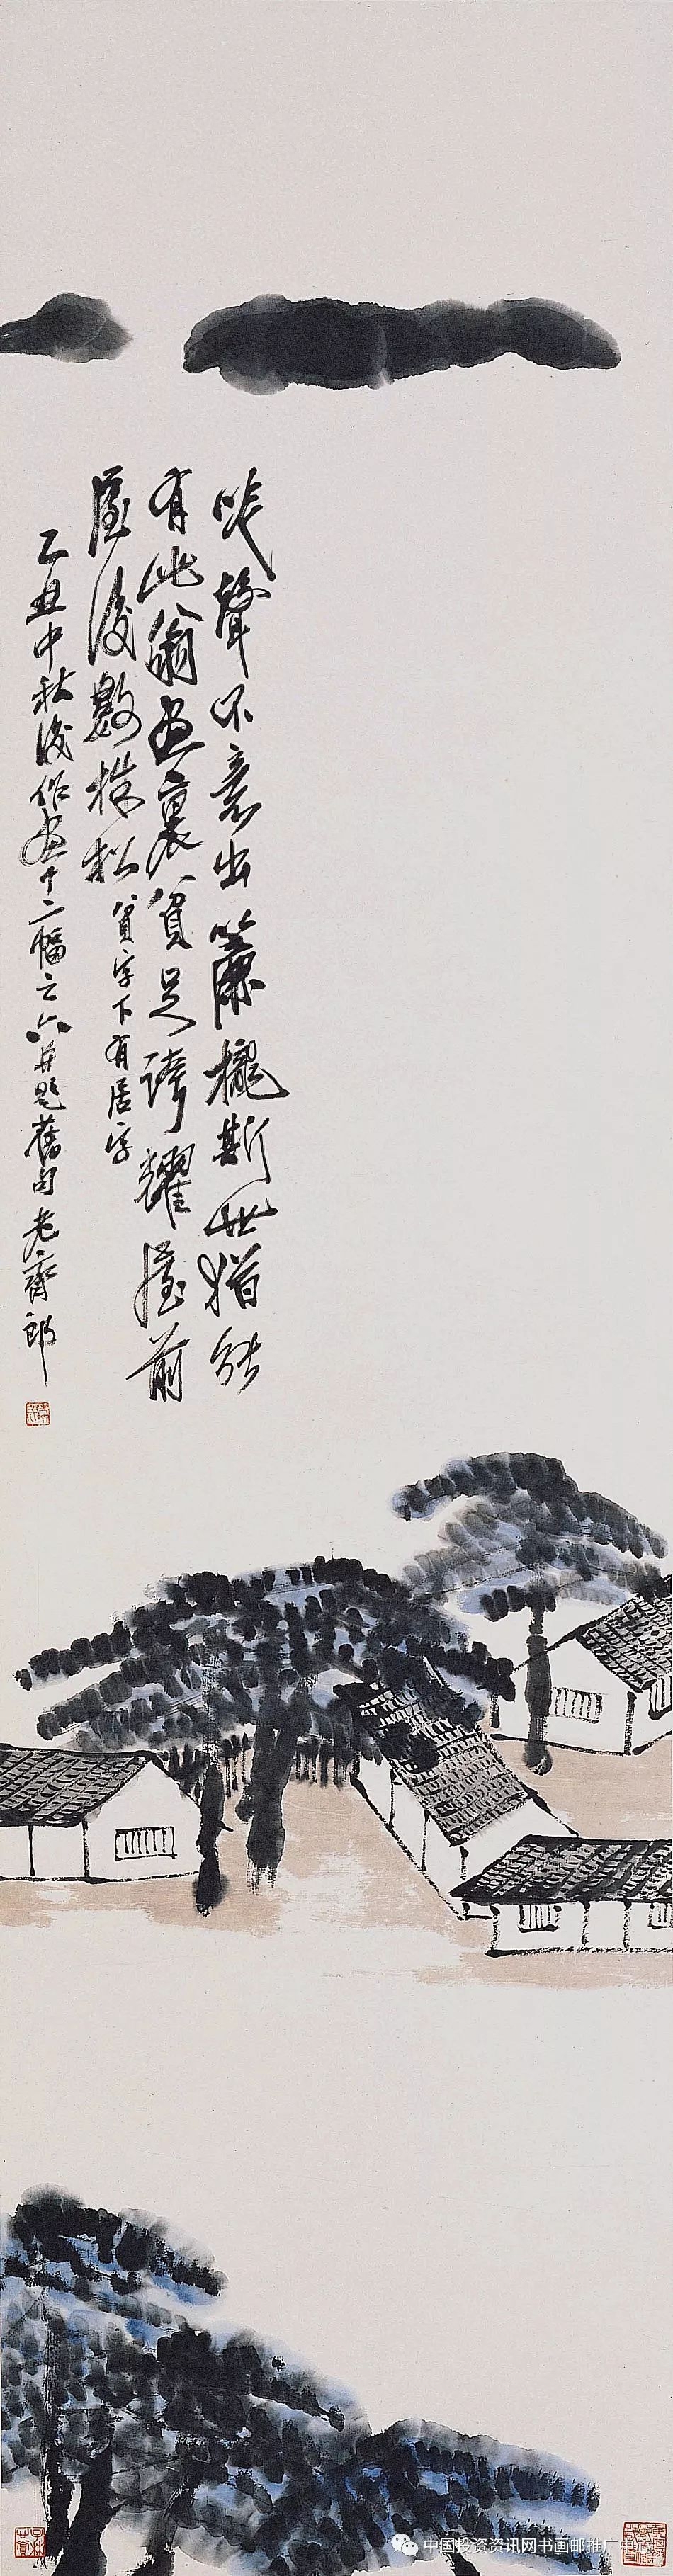 咳聲不意出簾櫳斯世猶能
有此翁畫裏貧足誇耀屋前
屋後數株松貧字下有居字
乙丑中秋後作畫十二幅之六并題舊句老齊郎
中国投资资讯网书画邮推广中心